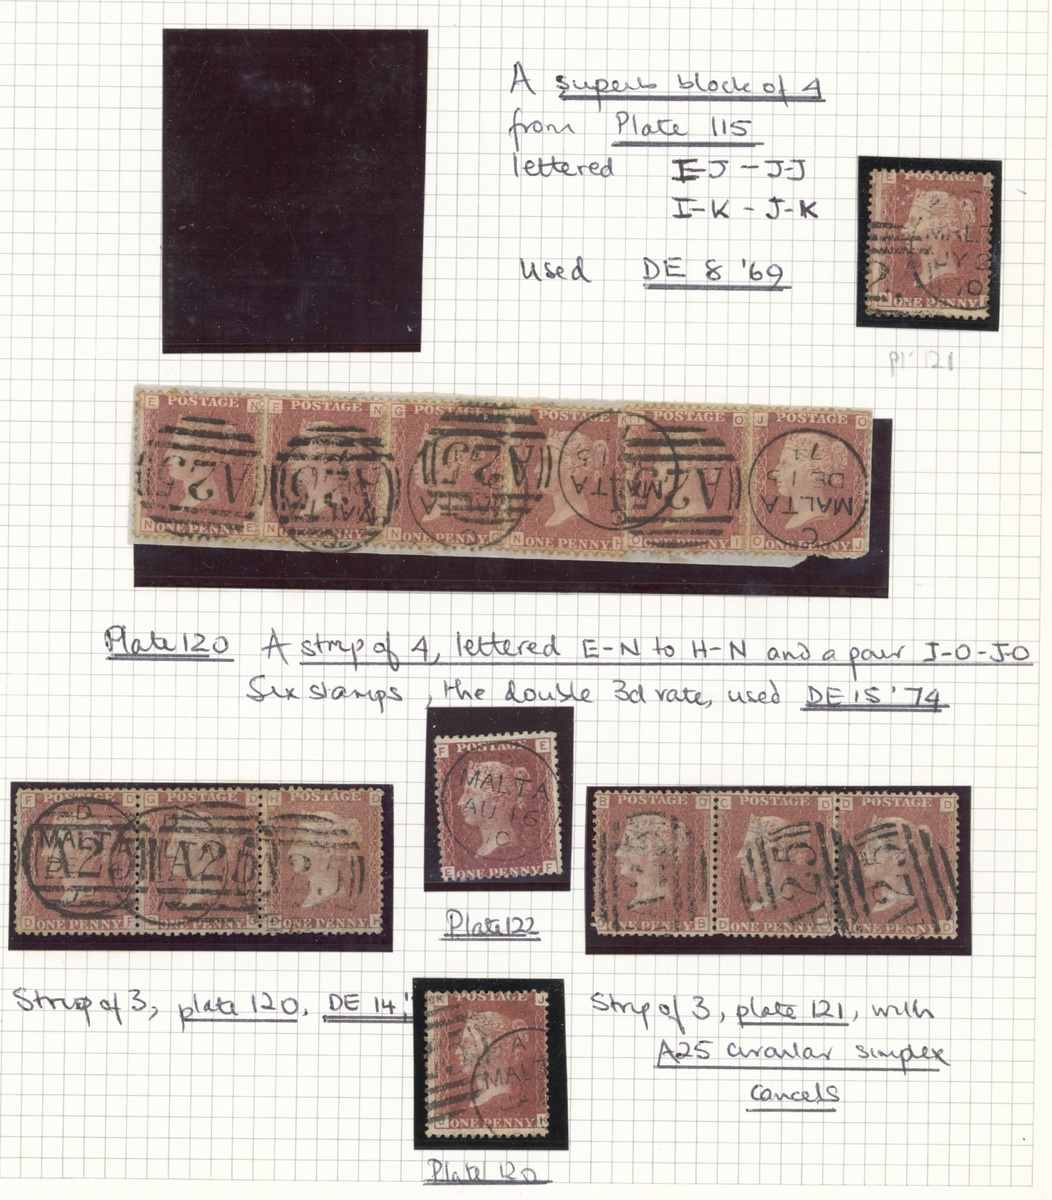 A superb block of 4
from Plate 115
lettered I-J - J-J
I-K - J-K
used DE 8 '69
POSTAGE
MALT
ONE PENNY
Pl 121
E POSTAGE N
POSTAGE N
G POSTAGE
POSTAGE
POSTAGE O
J POSTAGE O
A25
A25
A25
A25
MALTA
MALTA
DE 15
74
C
N ONE PENNY E
N ONE PENNY
N ONE PENNY
N ONE PENNY
O ONE PENNY I
O ONE PENNY J
Plate 120 A strip of 4, lettered E-N to H-N and a pair I-O-J-O
Six stamps, the double 3d rate, used DE 15 '74
F POSTAGE E
MALTA
AU 16
E ONE PENNY F
F POSTAGE
G POSTAGE
H POSTAGE D
D
MALTA
A25
A25
25
D ONE PENNY F
ONE PENNY G
D ONE PENNY H
B POSTAGE D
C POSTAGE D
D POSTAGE D
A25
A25
A25
ONE PENNY B
D ONE PENNY
ONE PENNY D
Plate 122
Strip of 3, plate 120, DE 14,'
K POSTAGE J
A
MALT
J ONE PENNY K
Strip of 3, plate 121, with
A25 circular simplex
cancels
Plate 120